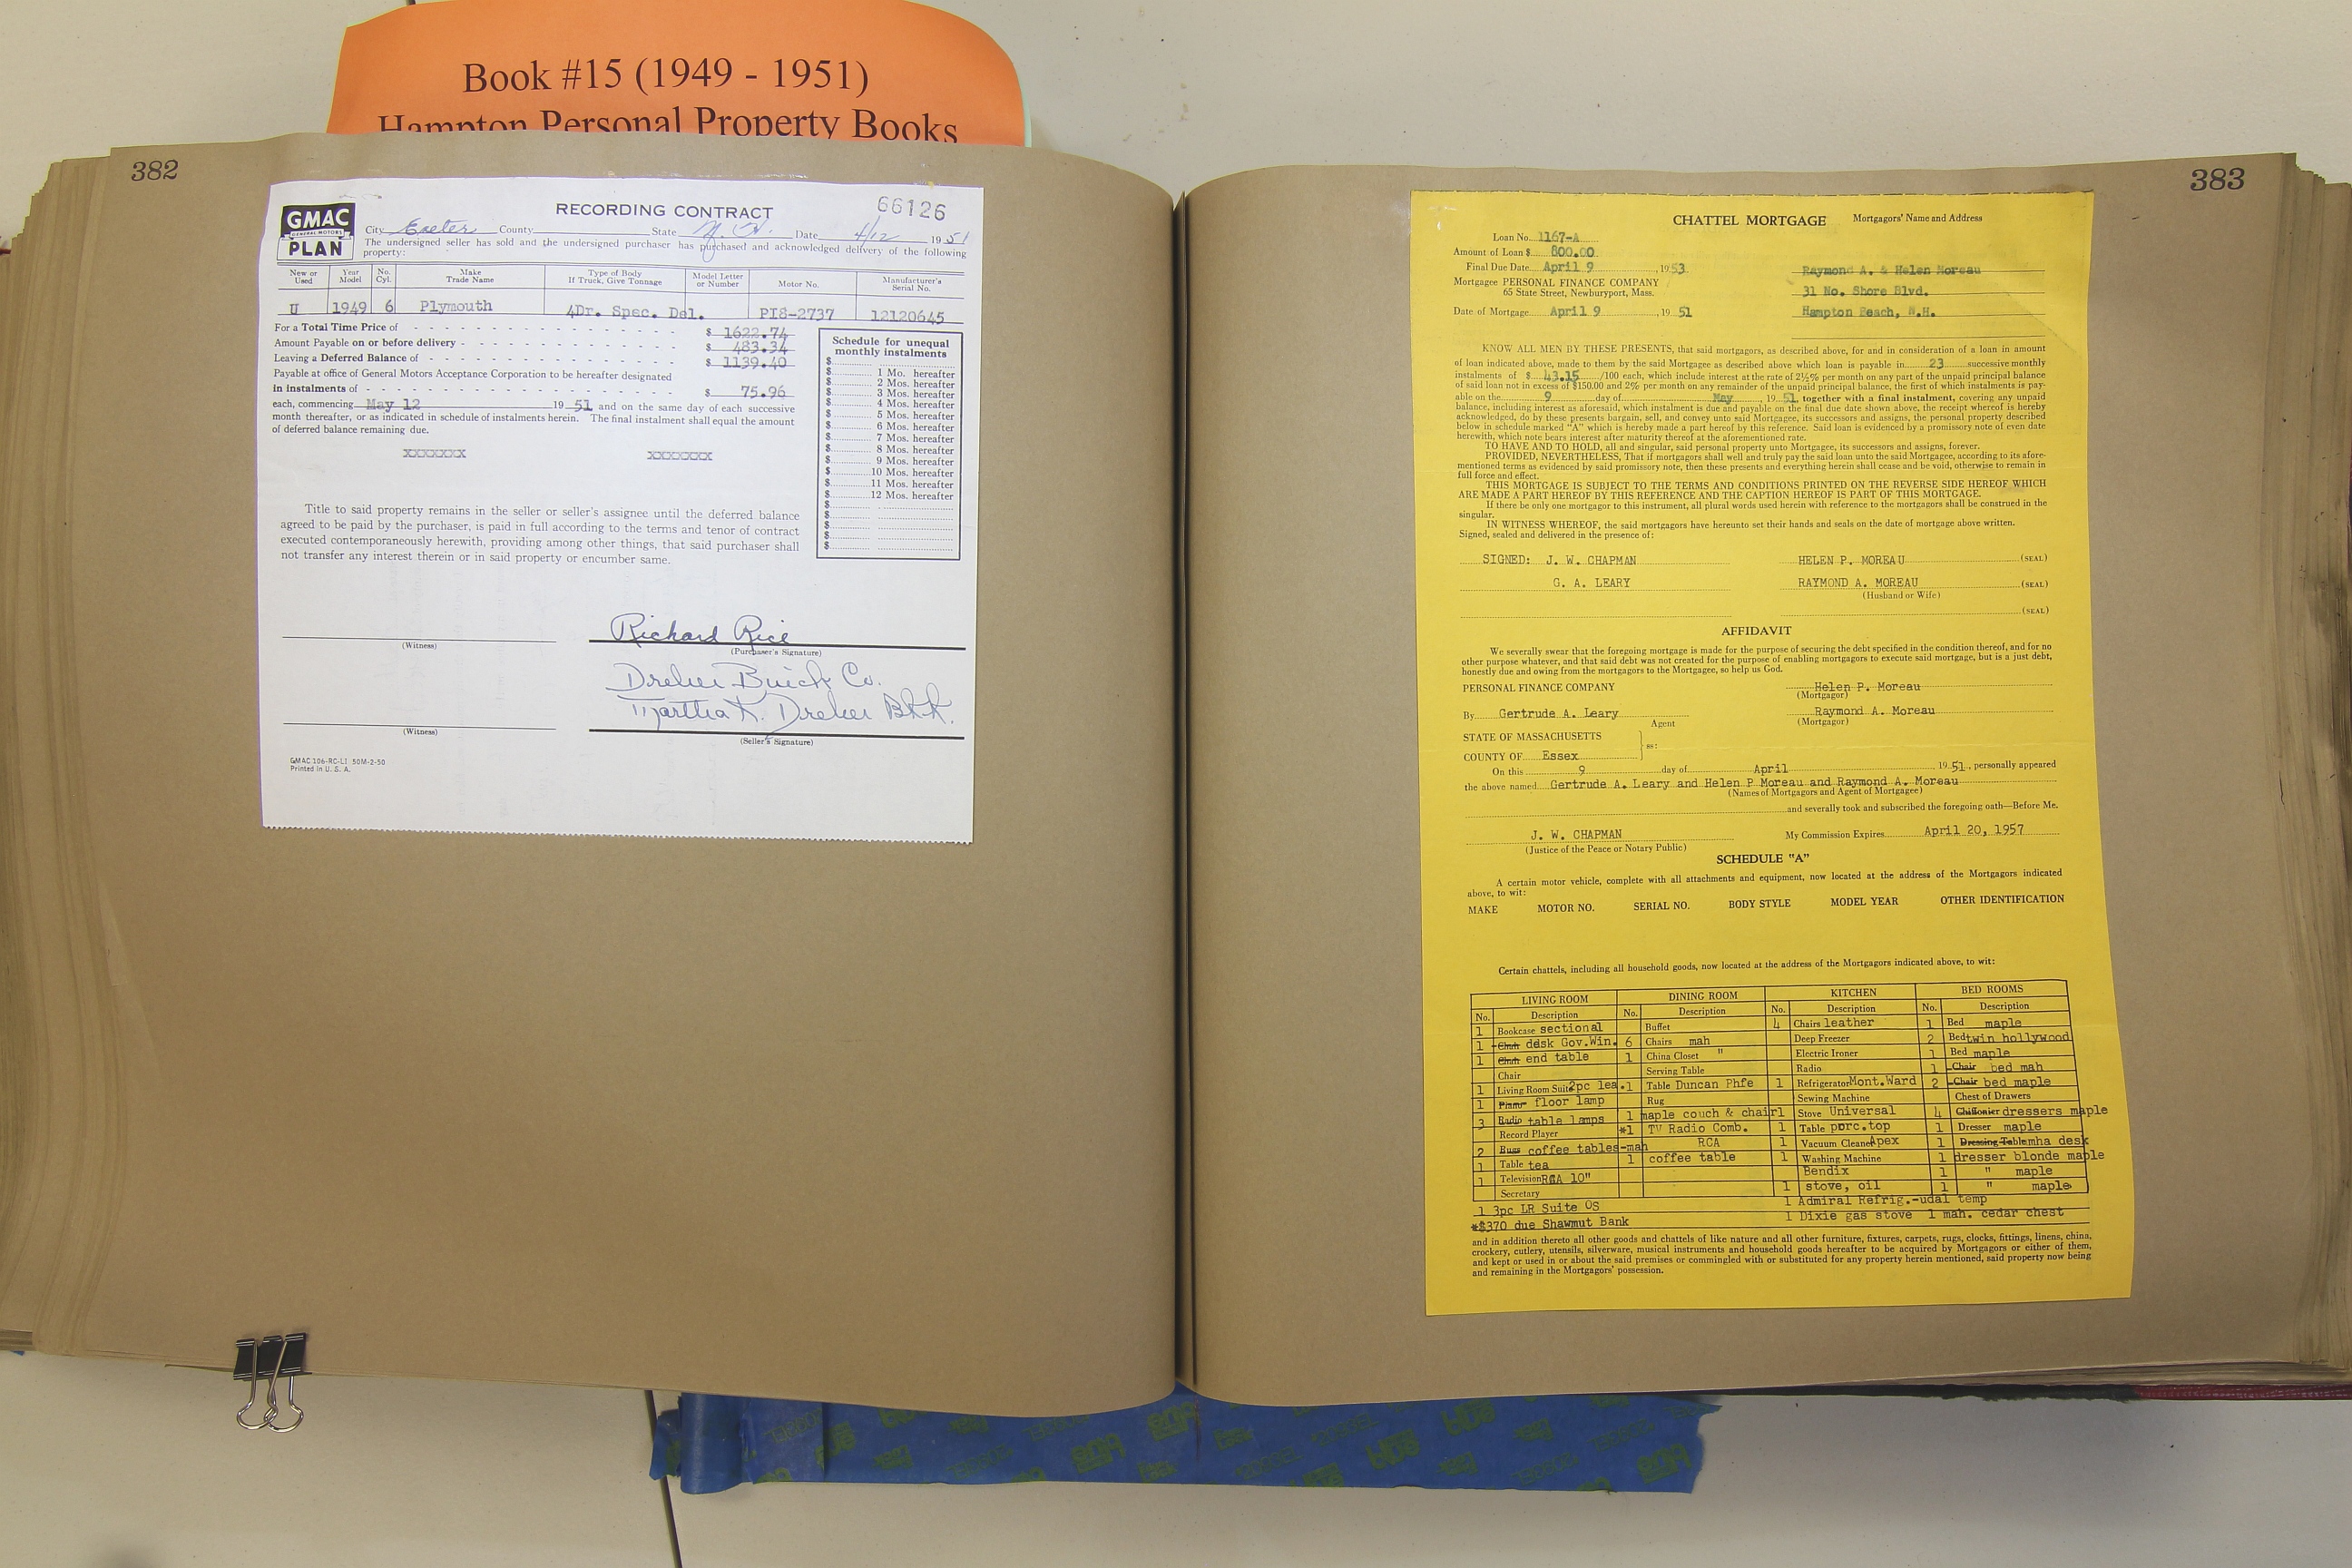 Book #15 (1949 - 1951)
Hampton Personal Property Books
382
GMAC
GENERAL MOTORS
PLAN
RECORDING CONTRACT
66126
City Exeter County State N. H. Date 4/12 1951
The undersigned seller has sold and the undersigned purchaser has purchased and acknowledged delivery of the following
property:
New or Used Year Model No. Cyl. Make Trade Name Type of Body If Truck, Give Tonnage Model Letter or Number Motor No. Manufacturer's Serial No.
U 1949 6 Plymouth 4Dr. Spec. Del. P18-2737 12120645
For a Total Time Price of $ 1622.74
Amount Payable on or before delivery $ 483.34
Leaving a Deferred Balance of $ 1139.40
Payable at office of General Motors Acceptance Corporation to be hereafter designated
in instalments of $ 75.96
each, commencing May 12 1951 and on the same day of each successive
month thereafter, or as indicated in schedule of instalments herein. The final instalment shall equal the amount
of deferred balance remaining due.
XXXXXXX XXXXXXX
Schedule for unequal
monthly instalments
$
$ 1 Mo. hereafter
$ 2 Mos. hereafter
$ 3 Mos. hereafter
$ 4 Mos. hereafter
$ 5 Mos. hereafter
$ 6 Mos. hereafter
$ 7 Mos. hereafter
$ 8 Mos. hereafter
$ 9 Mos. hereafter
$ 10 Mos. hereafter
$ 11 Mos. hereafter
$ 12 Mos. hereafter
$
$
$
$
$
Title to said property remains in the seller or seller's assignee until the deferred balance
agreed to be paid by the purchaser, is paid in full according to the terms and tenor of contract
executed contemporaneously herewith, providing among other things, that said purchaser shall
not transfer any interest therein or in said property or encumber same.
Richard Rice
(Witness) (Purchaser's Signature)
Dreher Buick Co.
Martha K. Dreher Bkk.
(Witness) (Seller's Signature)
GMAC 106-RC-LI 50M-2-50
Printed in U. S. A.
383
CHATTEL MORTGAGE Mortgagors' Name and Address
Loan No. 1167-A
Amount of Loan $ 800.00
Final Due Date April 9, 1953
Raymond A. & Helen Moreau
Mortgagee PERSONAL FINANCE COMPANY
65 State Street, Newburyport, Mass.
31 No. Shore Blvd.
Date of Mortgage April 9, 1951
Hampton Beach, N.H.
KNOW ALL MEN BY THESE PRESENTS, that said mortgagors, as described above, for and in consideration of a loan in amount
of loan indicated above, made to them by the said Mortgagee as described above which loan is payable in 23 successive monthly
instalments of $ 43.15 /100 each, which include interest at the rate of 2½% per month on any part of the unpaid principal balance
of said loan not in excess of $150.00 and 2% per month on any remainder of the unpaid principal balance, the first of which instalments is pay-
able on the 9 day of May, 1951 together with a final instalment, covering any unpaid
balance, including interest as aforesaid, which instalment is due and payable on the final due date shown above, the receipt whereof is hereby
acknowledged, do by these presents bargain, sell, and convey unto said Mortgagee, its successors and assigns, the personal property described
below in schedule marked "A" which is hereby made a part hereof by this reference. Said loan is evidenced by a promissory note of even date
herewith, which note bears interest after maturity thereof at the aforementioned rate.
TO HAVE AND TO HOLD, all and singular, said personal property unto Mortgagee, its successors and assigns, forever.
PROVIDED, NEVERTHELESS, That if mortgagors shall well and truly pay the said loan unto the said Mortgagee, according to its afore-
mentioned terms as evidenced by said promissory note, then these presents and everything herein shall cease and be void, otherwise to remain in
full force and effect.
THIS MORTGAGE IS SUBJECT TO THE TERMS AND CONDITIONS PRINTED ON THE REVERSE SIDE HEREOF WHICH
ARE MADE A PART HEREOF BY THIS REFERENCE AND THE CAPTION HEREOF IS PART OF THIS MORTGAGE.
If there be only one mortgagor to this instrument, all plural words used herein with reference to the mortgagors shall be construed in the
singular.
IN WITNESS WHEREOF, the said mortgagors have hereunto set their hands and seals on the date of mortgage above written.
Signed, sealed and delivered in the presence of:
SIGNED: J. W. CHAPMAN HELEN P. MOREAU (SEAL)
G. A. LEARY RAYMOND A. MOREAU (SEAL)
(Husband or Wife)
(SEAL)
AFFIDAVIT
We severally swear that the foregoing mortgage is made for the purpose of securing the debt specified in the condition thereof, and for no
other purpose whatever, and that said debt was not created for the purpose of enabling mortgagors to execute said mortgage, but is a just debt,
honestly due and owing from the mortgagors to the Mortgagee, so help us God.
PERSONAL FINANCE COMPANY Helen P. Moreau
(Mortgagor)
By Gertrude A. Leary Raymond A. Moreau
Agent (Mortgagor)
STATE OF MASSACHUSETTS
ss:
COUNTY OF Essex
On this 9 day of April, 1951, personally appeared
the above named Gertrude A. Leary and Helen P Moreau and Raymond A. Moreau
(Names of Mortgagors and Agent of Mortgagee)
and severally took and subscribed the foregoing oath—Before Me.
J. W. CHAPMAN My Commission Expires April 20, 1957
(Justice of the Peace or Notary Public)
SCHEDULE "A"
A certain motor vehicle, complete with all attachments and equipment, now located at the address of the Mortgagors indicated
above, to wit:
MAKE MOTOR NO. SERIAL NO. BODY STYLE MODEL YEAR OTHER IDENTIFICATION
Certain chattels, including all household goods, now located at the address of the Mortgagors indicated above, to wit:
LIVING ROOM DINING ROOM KITCHEN BED ROOMS
No. Description No. Description No. Description No. Description
1 Bookcase sectional Buffet 4 Chairs leather 1 Bed maple
1 Chair desk Gov.Win. 6 Chairs mah Deep Freezer 2 Bed twin hollywood
1 Chair end table 1 China Closet " Electric Ironer 1 Bed maple
Chair Serving Table Radio 1 Chair bed mah
1 Living Room Suite 2pc lea. 1 Table Duncan Phfe 1 Refrigerator Mont.Ward 2 Chair bed maple
1 Piano floor lamp Rug Sewing Machine Chest of Drawers
3 Radio table lamps 1 maple couch & chair 1 Stove Universal 4 Chiffonier dressers maple
Record Player *1 TV Radio Comb. 1 Table porc.top 1 Dresser maple
2 Rugs coffee tables-mah RCA 1 Vacuum Cleaner Apex 1 Dressing Table mha desk
1 Table tea 1 coffee table 1 Washing Machine 1 dresser blonde maple
1 Television RCA 10" Bendix 1 " maple
Secretary 1 stove, oil 1 " maple
1 3pc LR Suite OS 1 Admiral Refrig.-udal temp
*$370 due Shawmut Bank 1 Dixie gas stove 1 mah. cedar chest
and in addition thereto all other goods and chattels of like nature and all other furniture, fixtures, carpets, rugs, clocks, fittings, linens, china,
crockery, cutlery, utensils, silverware, musical instruments and household goods hereafter to be acquired by Mortgagors or either of them,
and kept or used in or about the said premises or commingled with or substituted for any property herein mentioned, said property now being
and remaining in the Mortgagors' possession.